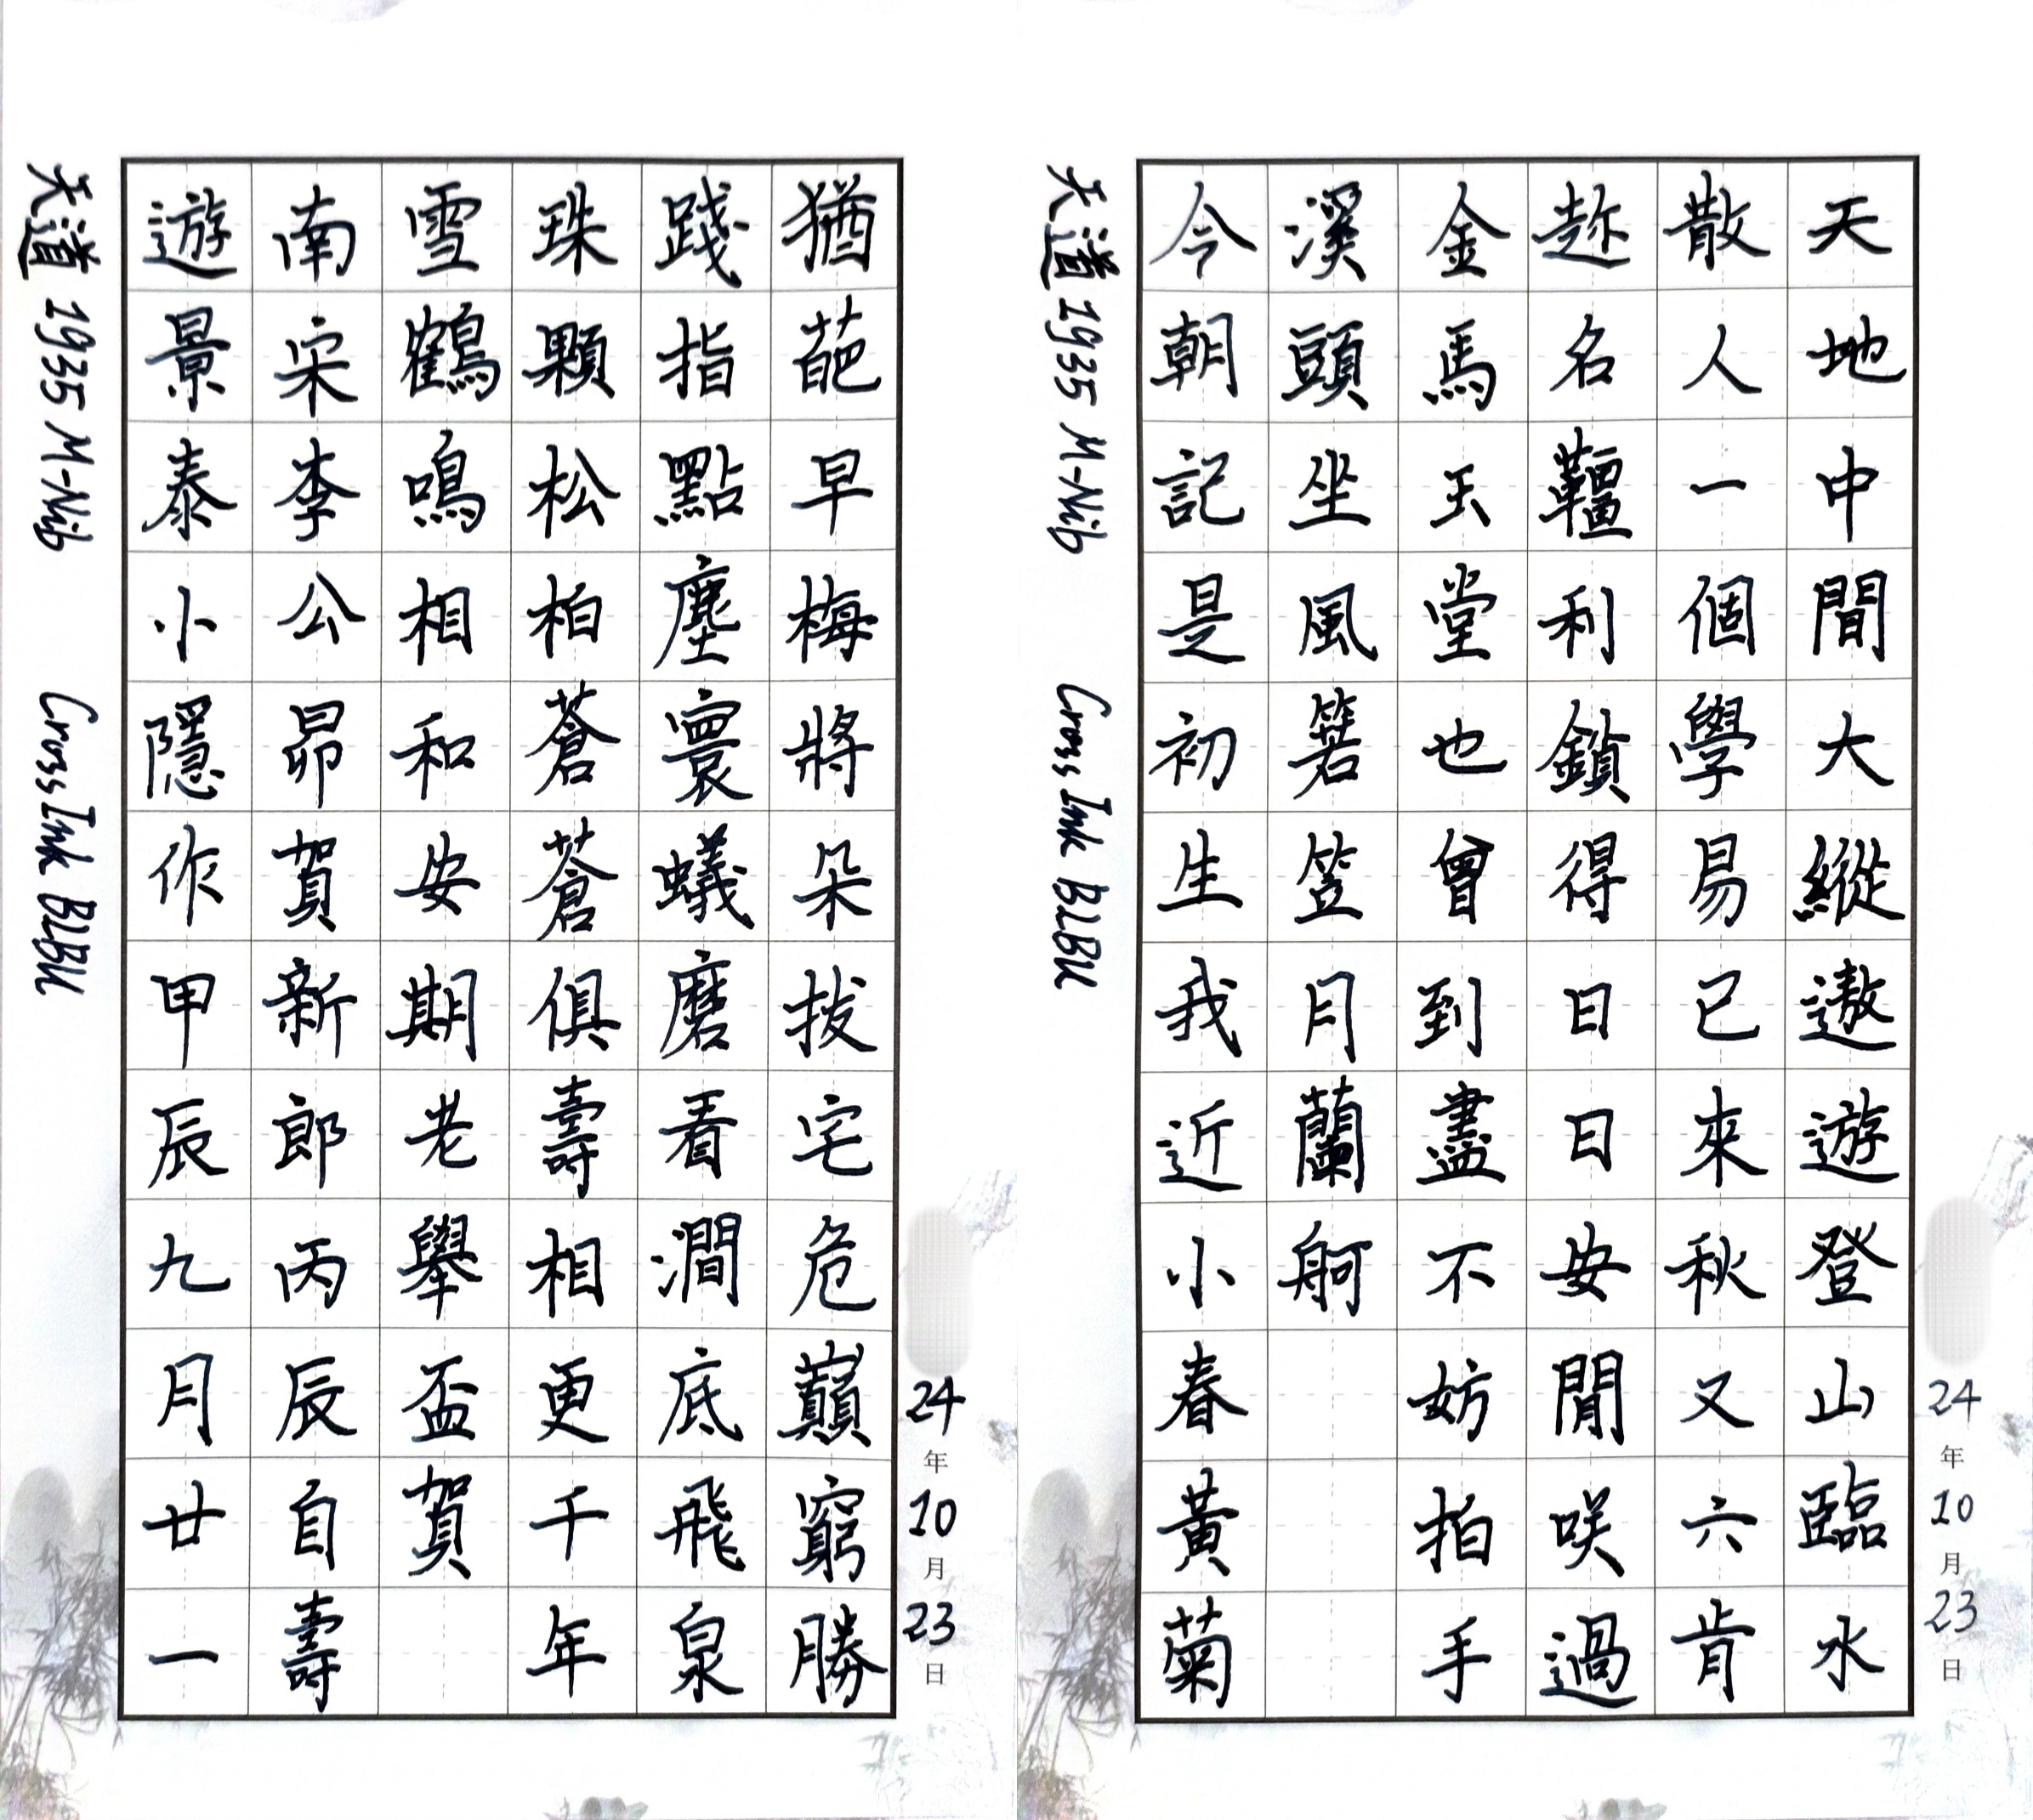 天地中間大縱遨遊登山臨水
散人一個學易已來秋又六肯
趂名韁利鎖得日日安閒咲過
金馬玉堂也曾到盡不妨拍手
溪頭坐風箬笠月蘭舸
今朝記是初生我近小春黃菊
24年10月23日
天道 1935 M-Nib Cross Ink BLBU
猶葩早梅將朵拔宅危巔窮勝
踐指點塵寰蟻磨看澗底飛泉
珠顆松柏蒼蒼俱壽相更千年
雪鶴鳴相和安期老舉盃賀
南宋李公昴賀新郎丙辰自壽
遊景泰小隱作甲辰九月廿一
24年10月23日
天道 1935 M-Nib Cross Ink BLBU